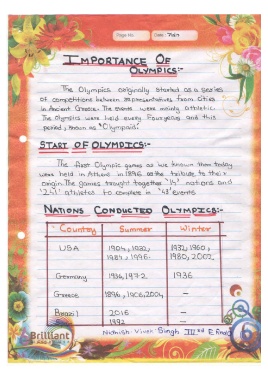 Page No.
Date
IMPORTANCE OF
OLYMPICS:-
The Olympics originally started as a series
of competitions between representatives from Cities
in Ancient Greece. The events were mainly athletic
The Olympics were held every Four years and this
period, known as "Olympaid".
START OF OLYMPICS:-
The first Olympic games as we known them today
were held in Athens in 1896, as the tribute to their
origin. The games brought together '14' nations and
'241' athletes to complete in '43' events
NATIONS CONDUCTED OLYMPICS:-
Country Summer Winter
USA 1904, 1932, 1932, 1960,
1984, 1996. 1980, 2002.
Germany 1936, 1972 1936
Greece 1896, 1906, 2004 –
Brazil 2016 –
Brilliant